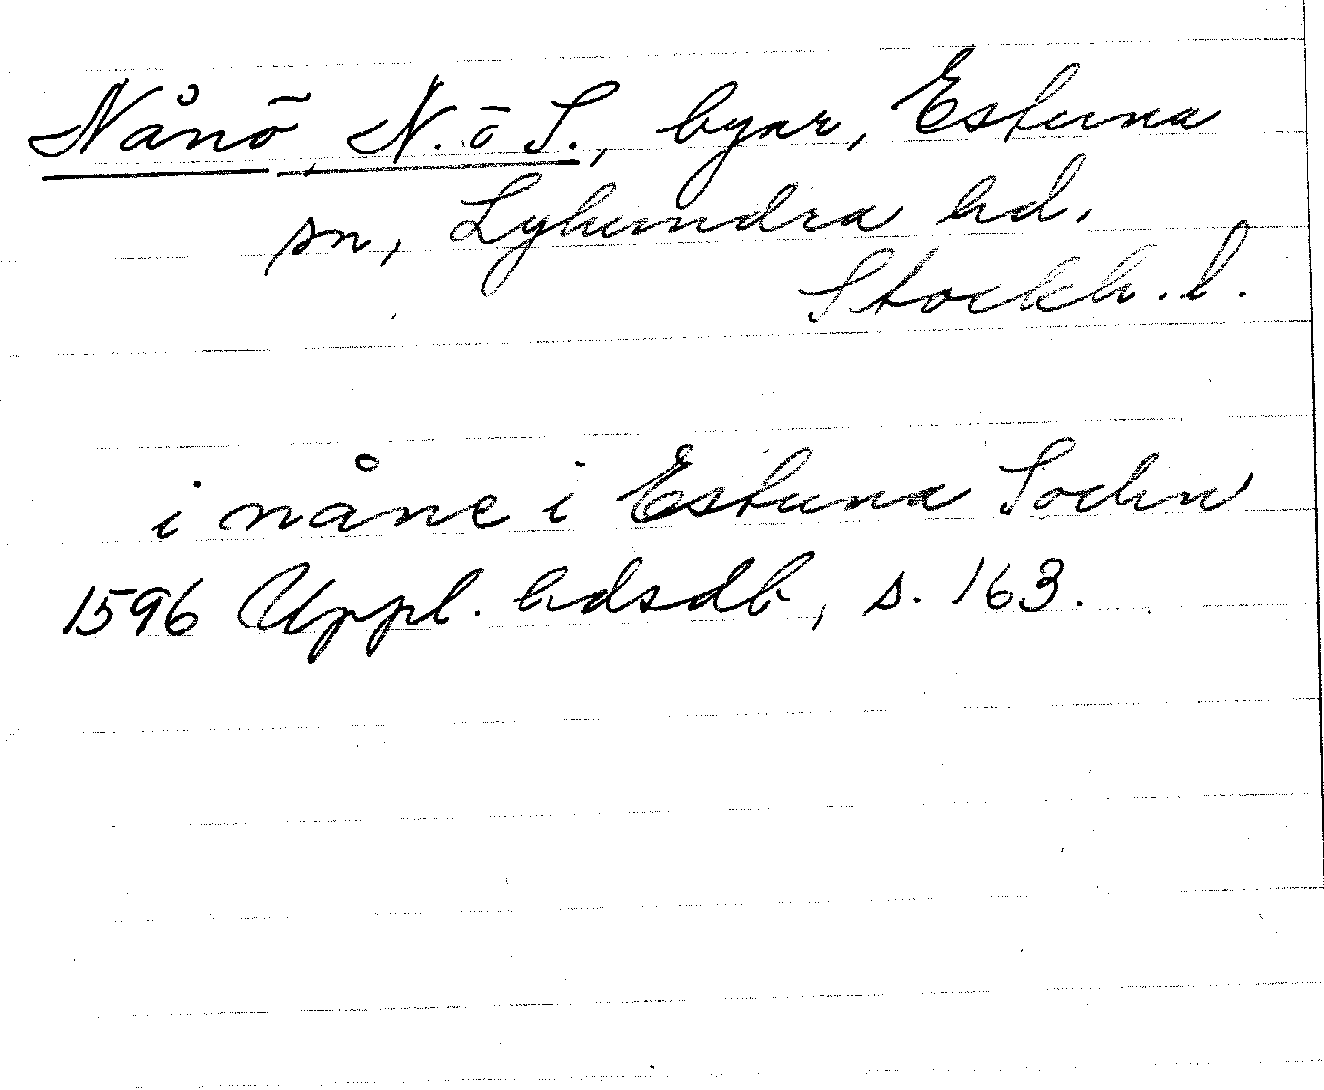 Nånö, N. o S., byar, Estuna
sn, Lyhundra hd.
Stockh. l.
i nåne i Estuna Sochn
1596 Uppl. hdsdb, s. 163.